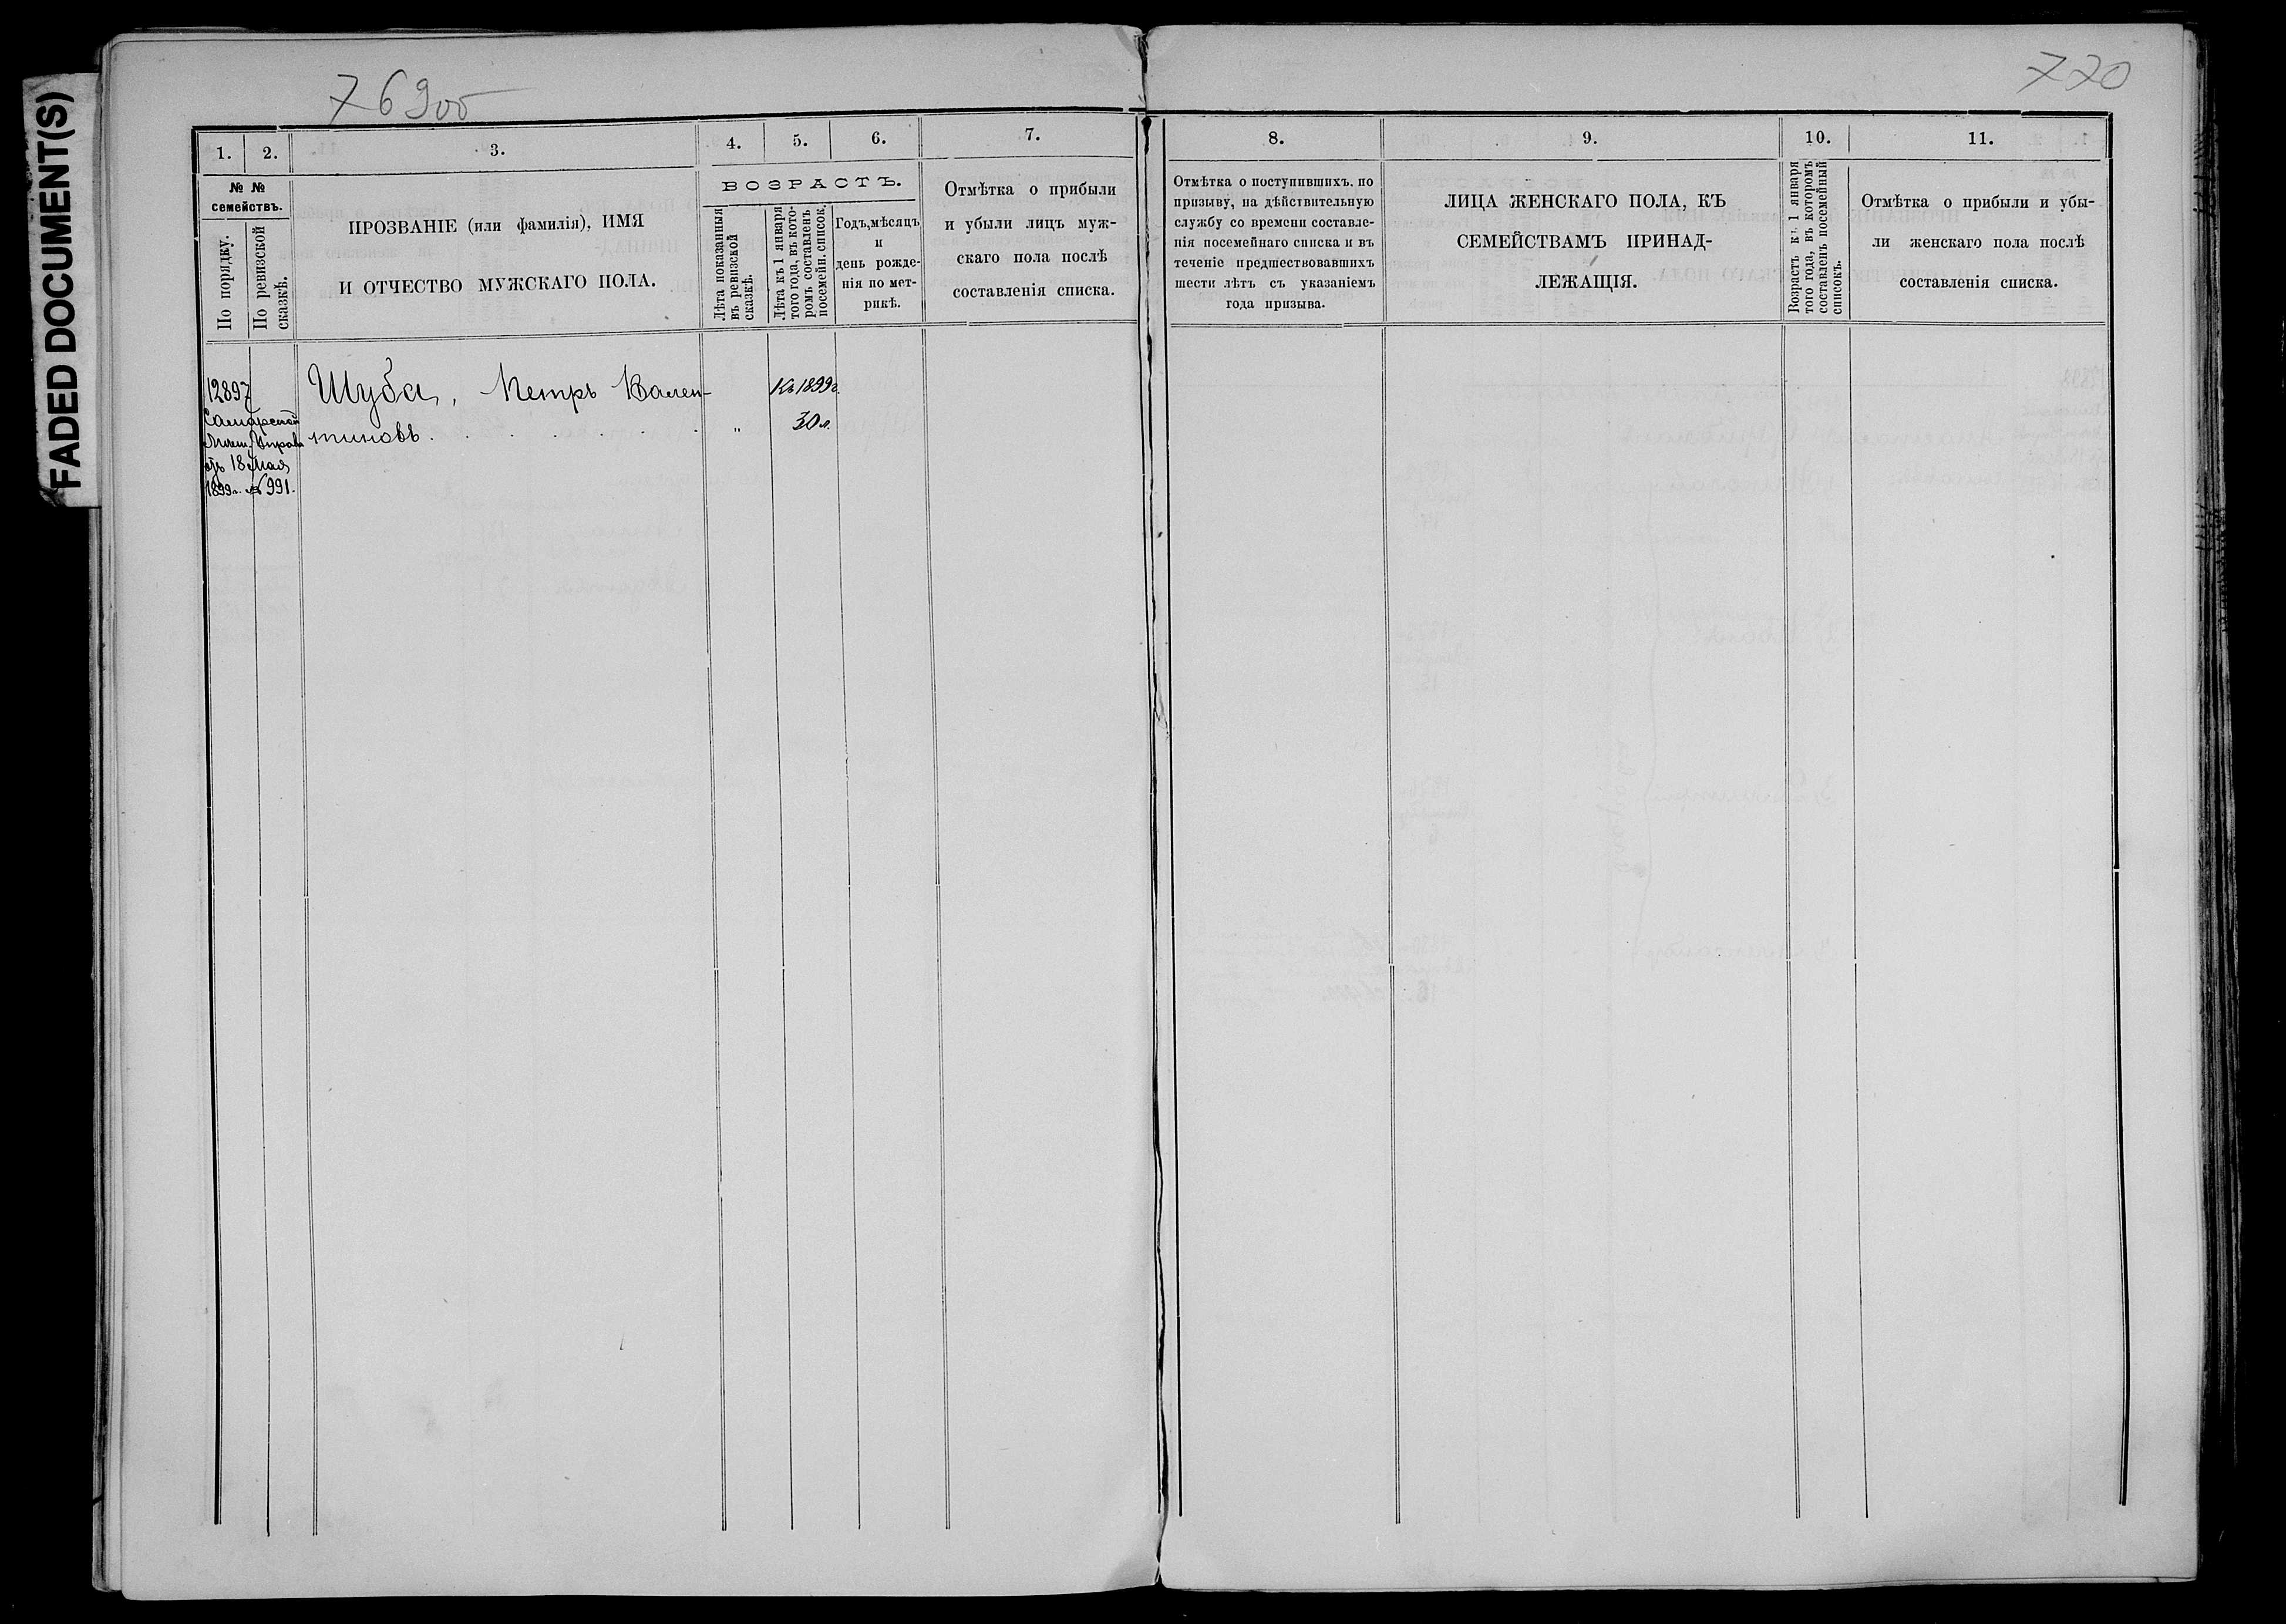 FADED DOCUMENT(S)
769об
770
1.
2.
3.
4.
5.
6.
7.
8.
9.
10.
11.
№ №
семействъ.
По порядку.
По ревизской
сказкѣ.
ПРОЗВАНІЕ (или фамилія), ИМЯ
И ОТЧЕСТВО МУЖСКАГО ПОЛА.
ВОЗРАСТЪ.
Лѣта показанныя
въ ревизской
сказкѣ.
Лѣта къ 1 января
того года, въ кото-
ромъ составленъ
посемейн. список.
Годъ, мѣсяцъ
и
день рожде-
нія по мет-
рикѣ.
Отмѣтка о прибыли
и убыли лицъ муж-
скаго пола послѣ
составленія списка.
Отмѣтка о поступившихъ. по
призыву, на дѣйствительную
службу со времени составле-
нія посемейнаго списка и въ
теченіе предшествовавшихъ
шести лѣтъ съ указаніемъ
года призыва.
ЛИЦА ЖЕНСКАГО ПОЛА, КЪ
СЕМЕЙСТВАМЪ ПРИНАД-
ЛЕЖАЩІЯ.
Возрастъ къ 1 января
того года, въ которомъ
составленъ посемейный
списокъ.
Отмѣтка о прибыли и убы-
ли женскаго пола послѣ
составленія списка.
12897
Самарской
Мѣщ. Управы
отъ 18 Мая
1899г. № 991.
Шуба, Петръ Вален-
тиновъ . . . . . .
"
Къ 1899г.
30 л.